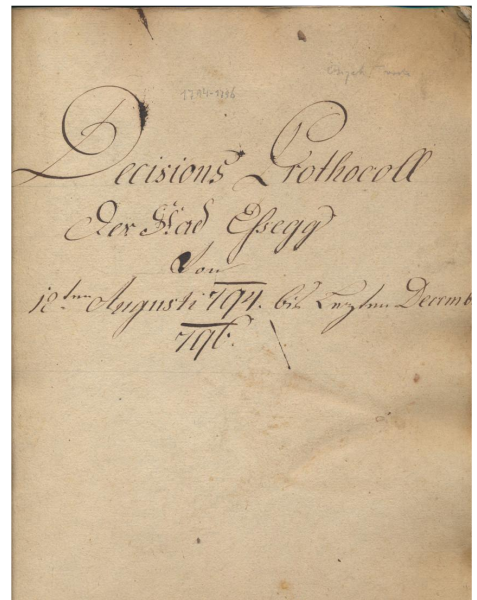 1794-1796
Decisions Prothocoll
Der Stad Essegg
Von
18ten Augusti 794. bis Lezten Decemb
796.